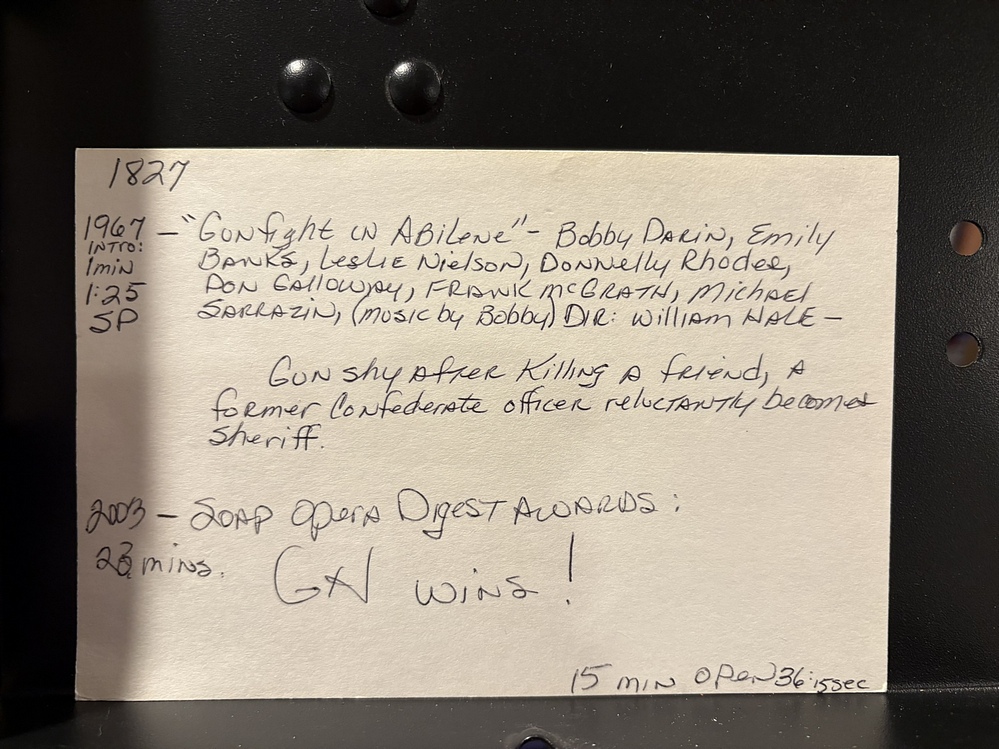 1827
1967 – "Gunfight in Abilene" – Bobby Darin, Emily
INTRO: Banks, Leslie Nielson, Donnelly Rhodes,
1min Don Galloway, Frank McGrath, Michael
1:25 Sarrazin, (music by Bobby) Dir: William Hale –
SP
Gun shy after killing a friend, a
former Confederate officer reluctantly becomes
sheriff.
2003 – Soap Opera Digest Awards:
23 mins. GN wins!
15 min open 36:15sec